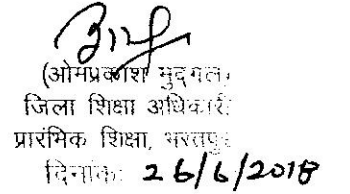 (ओमप्रकाश मुद्गल)
जिला शिक्षा अधिकारी
प्रारंभिक शिक्षा, भरतपुर
दिनांक: 26/6/2018